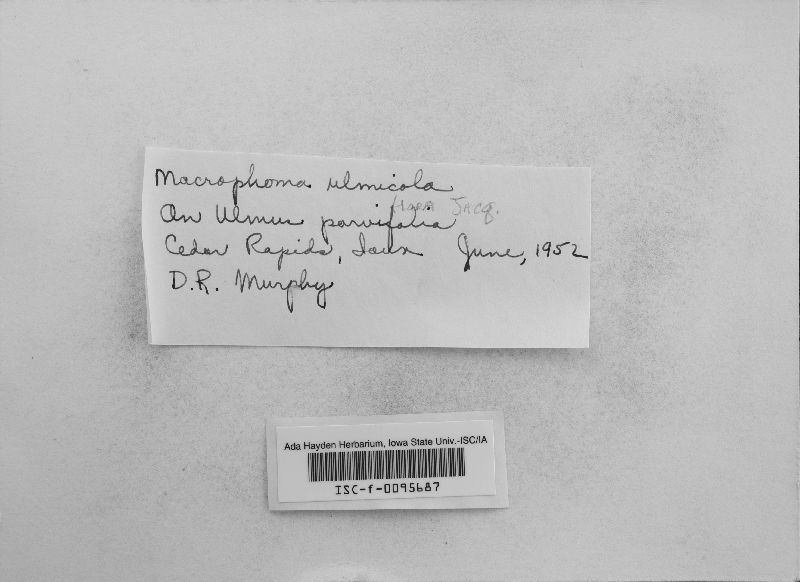 Macrophoma ulmicola
flora Jacq.
On Ulmus parvifolia
Cedar Rapids, Iowa June, 1952
D.R. Murphy
Ada Hayden Herbarium, Iowa State Univ.-ISC/IA
ISC-f-0095687